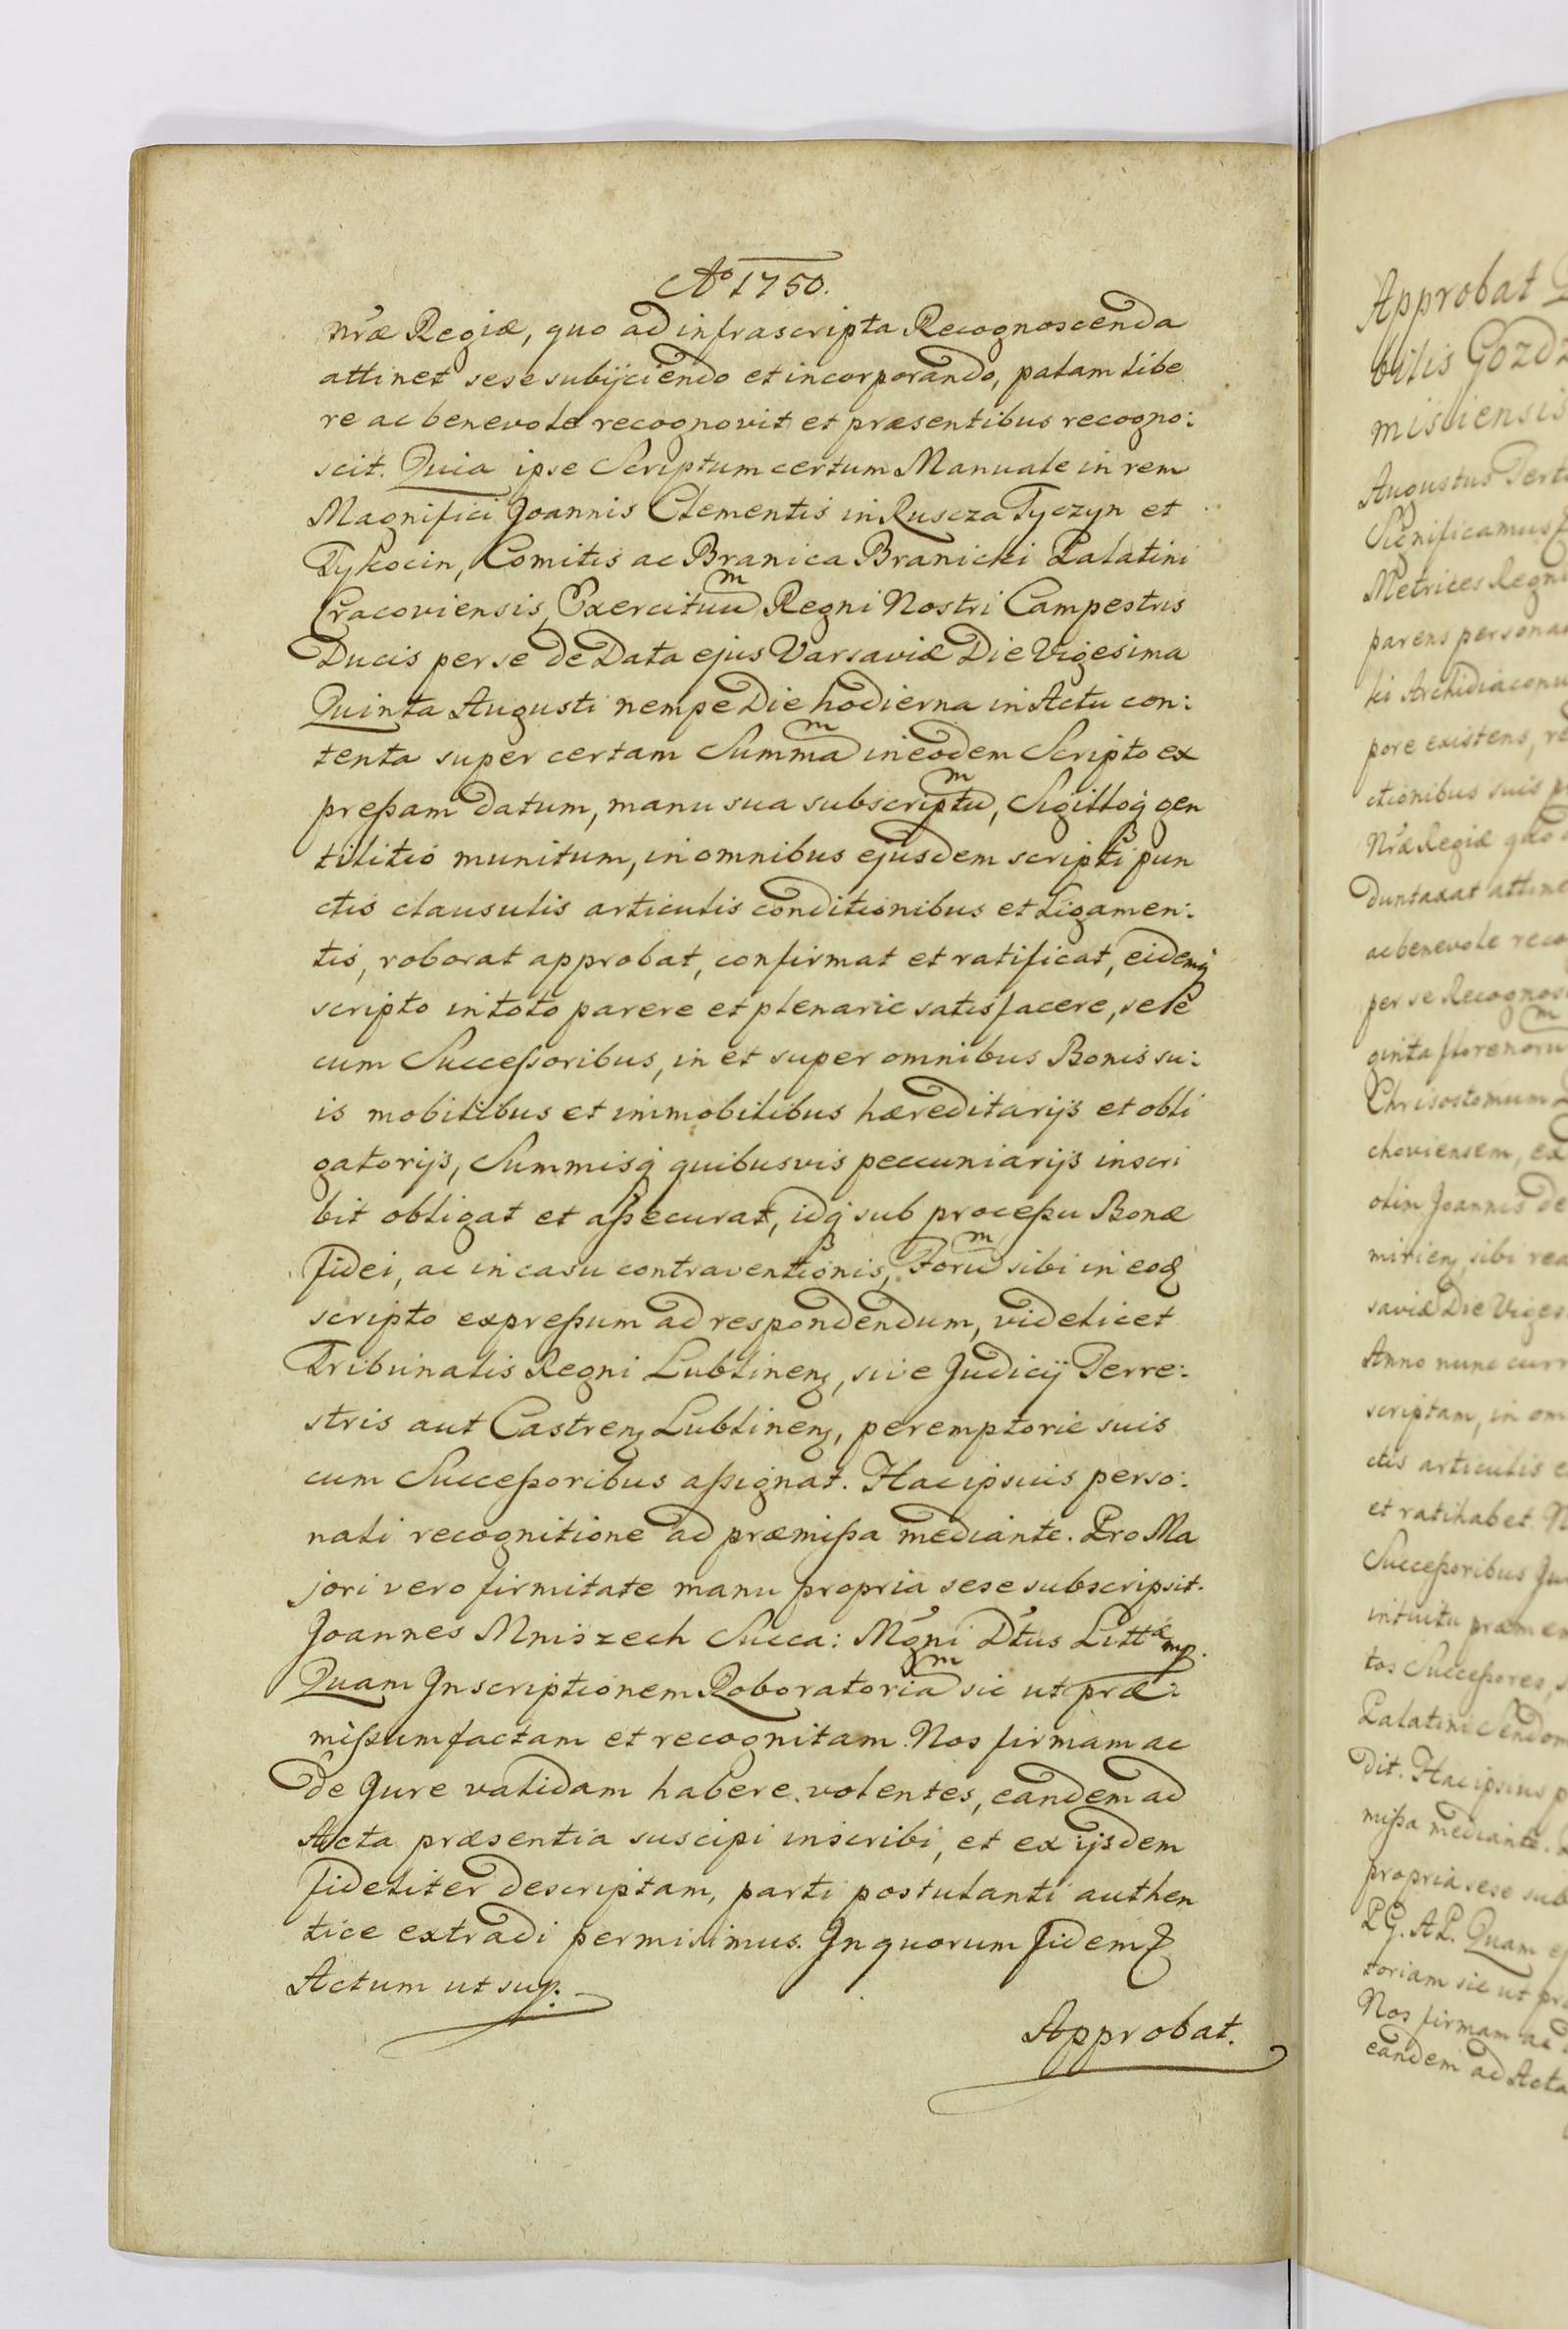 Aº 1750.
nr̃æ Regiæ, quo ad infrascripta Recognoscenda
attinet sese subijciendo et incorporando, palam libe
re ac benevole recognovit et præsentibus recogno:
scit. Quia ipse Scriptum certum Manuale in rem
Magnifici Joannis Clementis in Ruscza Tyczyn et
Tykocin, Comitis ac Branica Branicki Palatini
Cracoviensis, Exercituuᵐ Regni Nostri Campestris
Ducis per se de Data ejus Varsaviæ Die Vigesima
Quinta Augusti nempe Die hodierna in Actu con:
tenta super certam Summaᵐ in eodem Scripto ex
preßam datum, manu sua subscriptuᵐ, Sigilloq̨ gen
tilitio munitum, in omnibus ejusdem scripti pun
ctis clausulis articulis conditionibus et Ligamen:
tis, roborat approbat, confirmat et ratificat, eidemq̨
scripto in toto parere et plenarie satisfacere, sese
cum Succeßoribus, in et super omnibus Bonis su:
is mobilibus et immobilibus hæreditarijs et obli
gatorijs, Summisq̨ quibusvis peccuniarijs inscri
bit obligat et aßecurat, idq̨ sub proceßu Bonæ
fidei, ac in casu contraventionis, Foruᵐ sibi in eod̨
scripto expreßum ad respondendum, videlicet
Tribunalis Regni Lublinen̨, sive Judicij Terre:
stris aut Castren̨ Lublinen̨, peremptorie suis
cum Succeßoribus aßignat. Hac ipsius perso:
nali recognitione ad præmißa mediante. Pro Ma
jori vero firmitate manu propria sese subscripsit.
Joannes Mniszech Succa: Mg̃ni D̃tus Littæ mp.
Quam Inscriptionem Roboratoriaᵐ sic ut præ:
mißum factam et recognitam. Nos firmam ac
de Jure validam habere volentes, eandem ad
Acta præsentia suscipi inscribi, et ex ijsdem
fideliter descriptam, parti postulanti authen
tice extradi permisimus. In quorum fidem &
Actum ut sup.
Approbat.
Approbat
bilis Gozdz
misliensis
Augustus Terti
Significamus
Metrices Regni
parens persona
ki Archidiaconu
pore existens, re
ctionibus suis p
Nr̃æ Regiæ quo
duntaxat attine
ac benevole reco
per se Recognos
ginta florenoruᵐ
Chrisostomum
choviensem, ex
olim Joannis de
mirien̨ sibi rea
saviæ Die Viges
Anno nunc curr
scriptam, in om
ctis articulis e
et ratihabet. N
Succeßoribus Ju
intuitu præm
tos Succeßores, s
Palatini Sendom
dit. Hac ipsius p
mißa mediante.
propria sese sub
PG. AP. Quam ej
toriam sic ut pr
Nos firmam ac d
eandem ad Acta